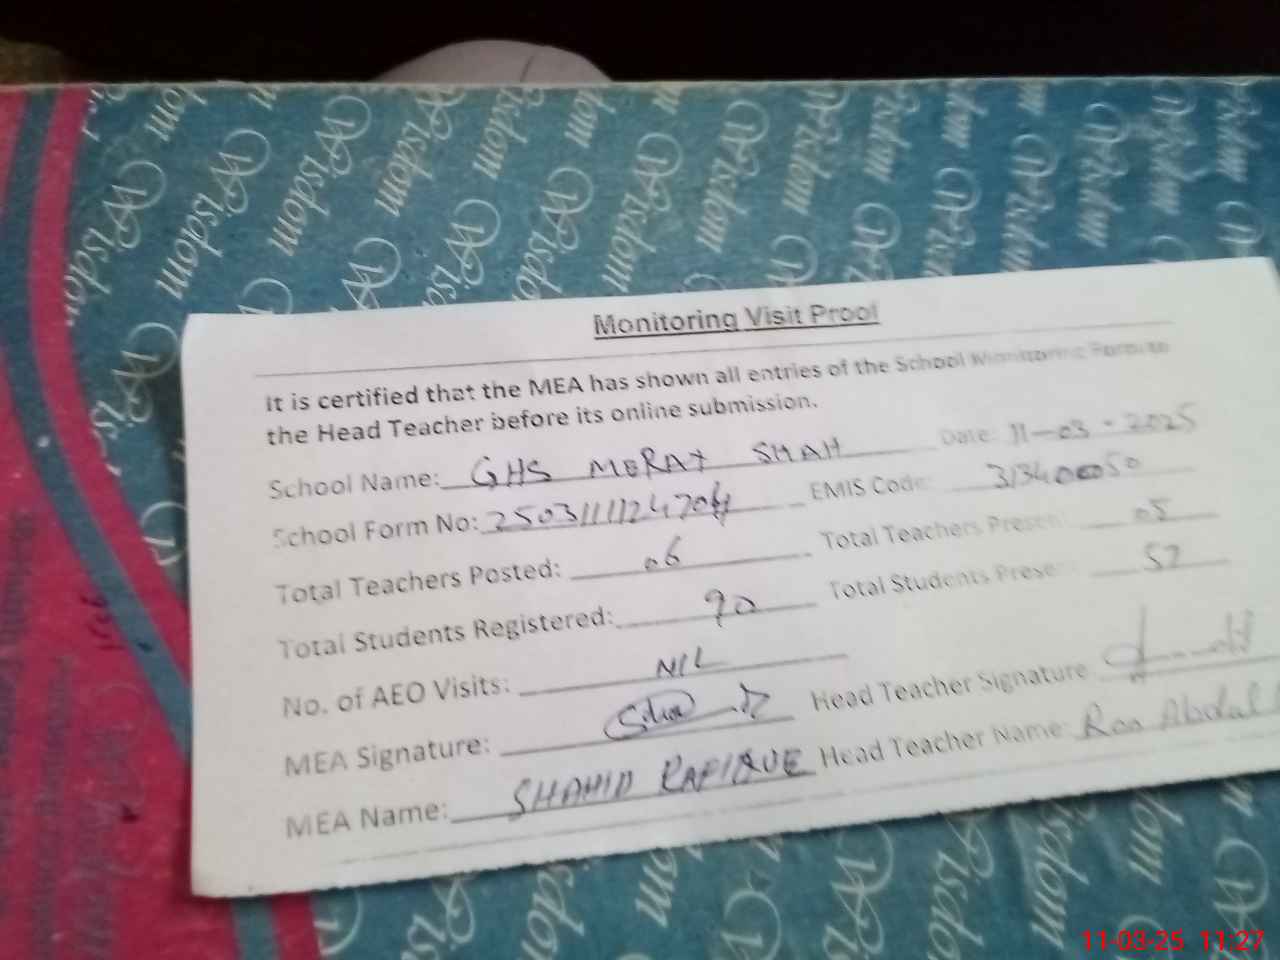 Monitoring Visit Proof
It is certified that the MEA has shown all entries of the School Monitoring Form to
the Head Teacher before its online submission.
School Name: GHS MORAT SHAH Date: 11-03-2025
School Form No: 2503111124704 EMIS Code: 31340050
Total Teachers Posted: 06 Total Teachers Present 05
Total Students Registered: 90 Total Students Present 57
No. of AEO Visits: NIL
MEA Signature: Head Teacher Signature
MEA Name: SHAHID RAFIQUE Head Teacher Name: Rao Abdul
Wisdom
11-03-25 11:27